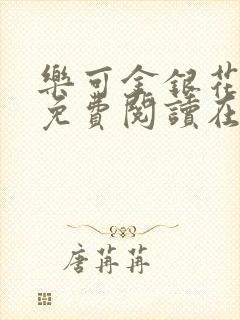 樂可金銀花
免費閱讀在
唐苒苒